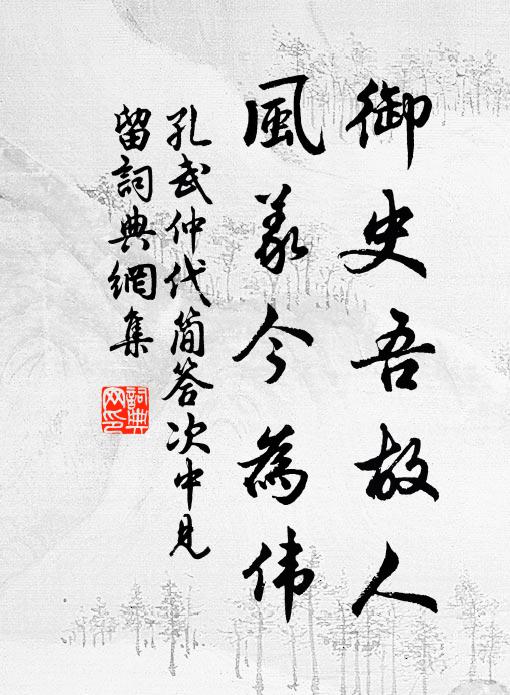 御史吾故人
風義今為伟
孔武仲代简答次中見
留詞典網集
詞典网印